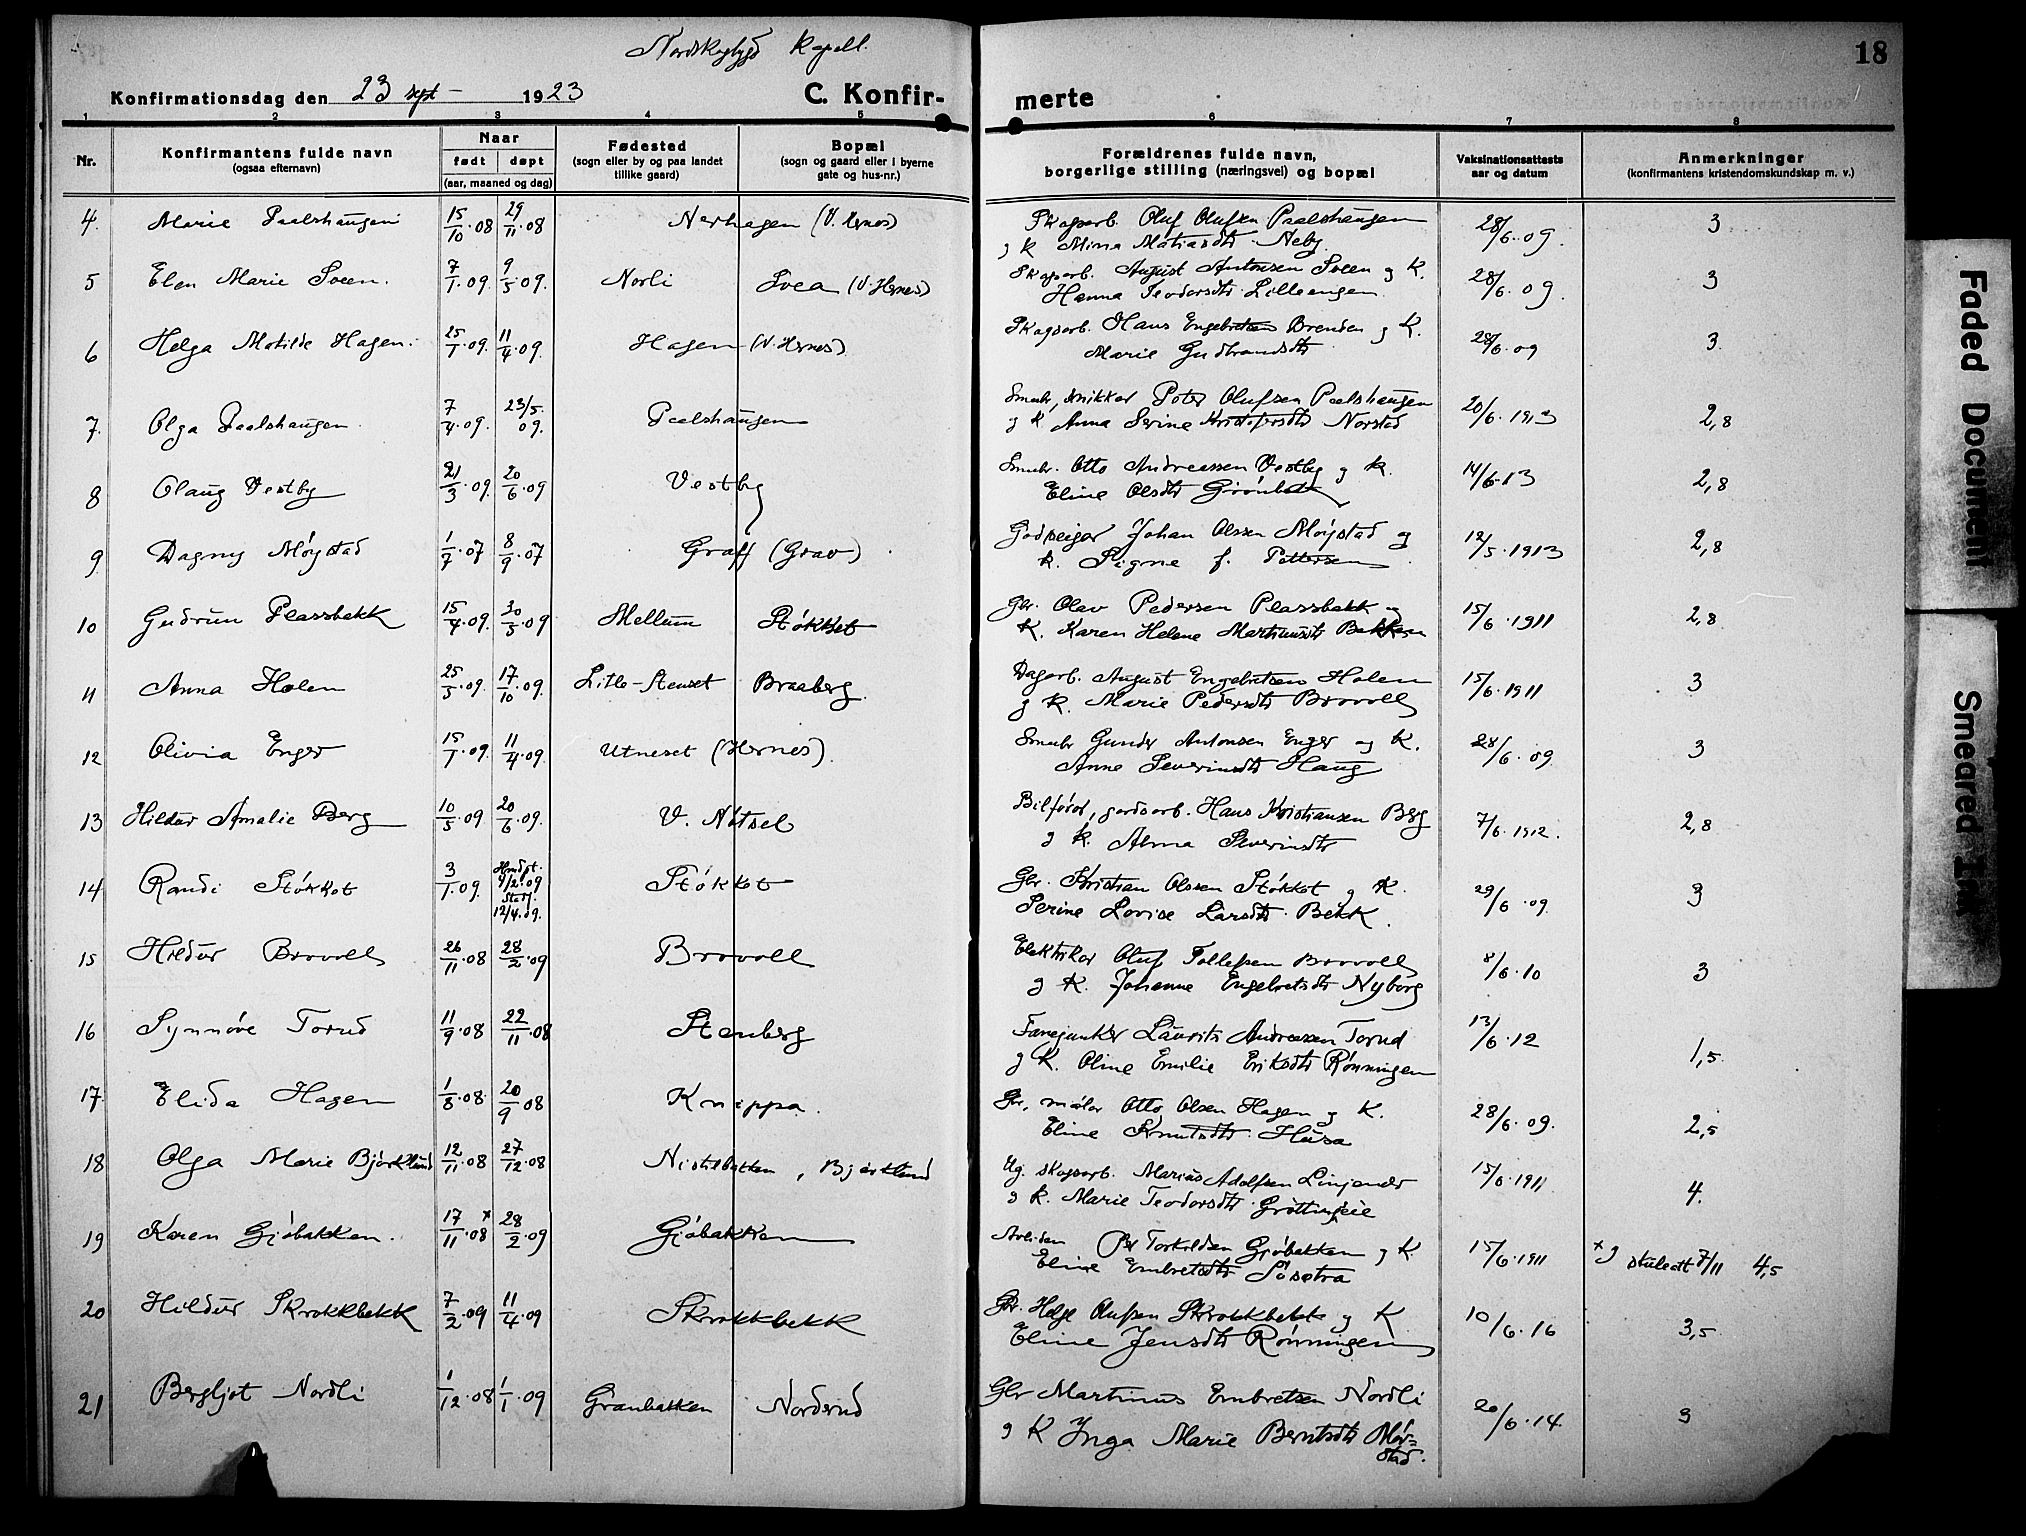 Nordskogbygd kapell.
18
Konfirmationsdag den 23 sept 1923
C. Konfir-
merte
1 2 3 4 5 6 7 8
Nr.
Konfirmantens fulde navn
(ogsaa efternavn)
Naar
født døpt
(aar, maaned og dag)
Fødested
(sogn eller by og paa landet
tillike gaard)
Bopæl
(sogn og gaard eller i byerne
gate og hus-nr.)
Forældrenes fulde navn,
borgerlige stilling (næringsvei) og bopæl
Vaksinationsattests
aar og datum
Anmerkninger
(konfirmantens kristendomskundskap m. v.)
4. Marie Paalshaugen 15/10.08 29/11.08 Nerhagen (V. Hernes) Skogsarb. Oluf Olufsen Paalshaugen 28/6.09. 3
g k Mina Matiasdtr Neby.
5 Elen Marie Sveen. 7/1.09. 9/5.09. Norli Svea (V. Hernes) Skogsarb. August Antonsen Sveen g K. 28/6.09. 3
Hanna Teodorsdtr Lilleengen.
6 Helga Matilde Hagen. 25/1.09. 11/4.09. Hagen (V. Hernes) Skogsarb. Hans Engebretsen Brenden g K. 28/6.09 3.
Marie Gudbrandsdtr
7. Olga Paalshaugen. 7/4.09. 23/5.09. Paalshaugen Smbr, snikker Peter Olufsen Paalshaugen 20/6.1913 2,8
g k Anna Serine Kristofersdtr Norstad
8 Olaug Vestby 21/3.09. 20/6.09 Vestby Smbr. Otto Andreassen Vestby g K. 14/6.13 2,8
Eline Olsdtr Grönbekk
9. Dagny Möystad 1/7.07 8/9.07 Graff (Grav) Godseier Johan Olsen Möystad og 12/5.1913 2,8
k. Signe f. Pettersen
10 Gudrun Plassbakk 15/4.09. 30/5.09 Mellum Støkket Gbr. Olav Pedersen Plassbakk og 15/6.1911 2,8
K. Karen Helene Martinusdtr Bekken
11 Anna Holen 25/5.09. 17/10.09. Litle-Stenset Braaberg. Dagarb. August Engebretsen Holen 15/6.1911 3
g K. Marie Pedersdtr Brovoll
12 Olivia Enger 15/1.09. 11/4.09. Utneset (Hernes). Smbr Gunder Antonsen Enger og K. 28/6.09. 3
Anne Severinsdtr Haug
13 Hildur Amalie Berg 10/5.09 20/6.09. V. Nötsel Bilförer, gardsarb. Hans Kristiansen Berg 7/6.1912. 2,8
g k. Alma Severinsdtr
14 Randi Stökket 3/1.09. Hmdpt. 9/2.09 Stadf. 12/4.09. Stökket Gbr. Kristian Olssen Stökket g K. 29/6.09. 3
Serine Lovise Larsdtr Bekk.
15 Hildur Brovoll 26/11.08 28/2.09 Brovoll Elektriker Oluf Tollefsen Brovoll 8/6.10 3
g K. Johanne Engebretsdtr Nyborg
16 Synnöve Torud 11/9.08 22/11.08 Stenberg Fanejunker Laurits Andreassen Torud 13/6.12 1,5
g K. Oline Emilie Eriksdtr Rönningen
17. Elida Hagen 1/8.08. 20/9 08 Knappa. Gbr, maler Otto Olsen Hagen g K. 28/6.09. 2,5
Eline Knutsdtr Husa
18 Olga Marie Björklund 12/11.08 27/12.08 Nistilbakken, Bjørklund Ug. skogsarb. Marius Adolfsen Linjander 15/6.1911 4.
g k. Marie Teodorsdtr Gröttingeie
19 Karen Gjöbakken. 17/11.08 x 28/2.09 Gjöbakken Arbeider Per Torkildsen Gjöbakken g K 15/6.1911 x g skuleatt 7/11 4,5
Eline Embretsdtr Söseter
20 Hildur Skrokkbekk 7/2.09 11/4.09 Skrokkbekk Gbr. Helge Olufsen Skrokkbekk g K 10/6.16 3,5
Eline Jensdtr Rönningen
21 Bergljot Nordli 1/12.08 1/1.09 Granbakken Nordrud Gbr Martinus Embretsen Nordli 20/6.14. 3
g K Inga Marie Berntsdtr Mör-
stad.
Faded Document
Smeared Ink